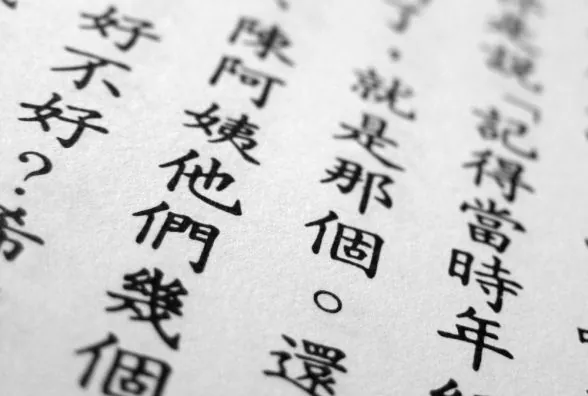 說「記得當時年
了，就是那個。還
、陳阿姨他們幾個
好不好？希